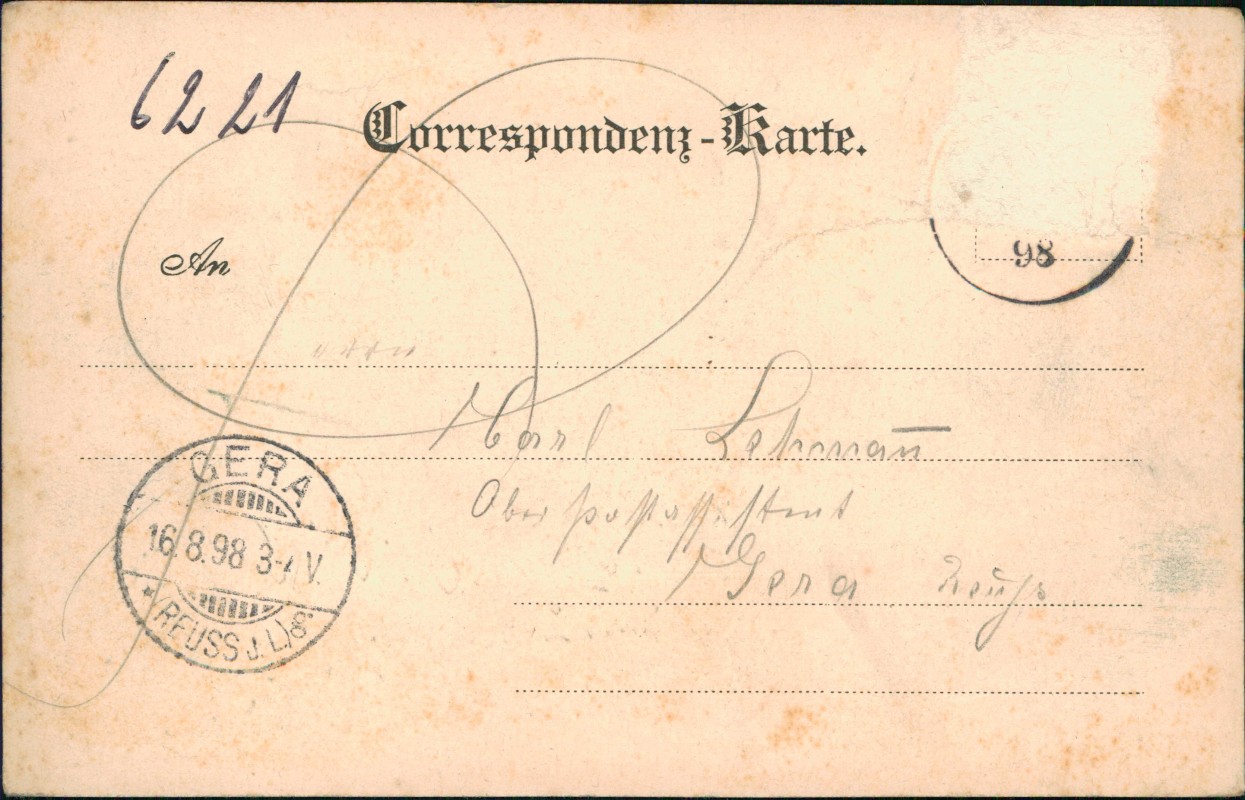 6221
Correspondenz-Karte.
An
98
Karl
Oberpostassistent
Gera Reuß
GERA
16.8.98 3-4 V.
* (REUSS J. L.) g.